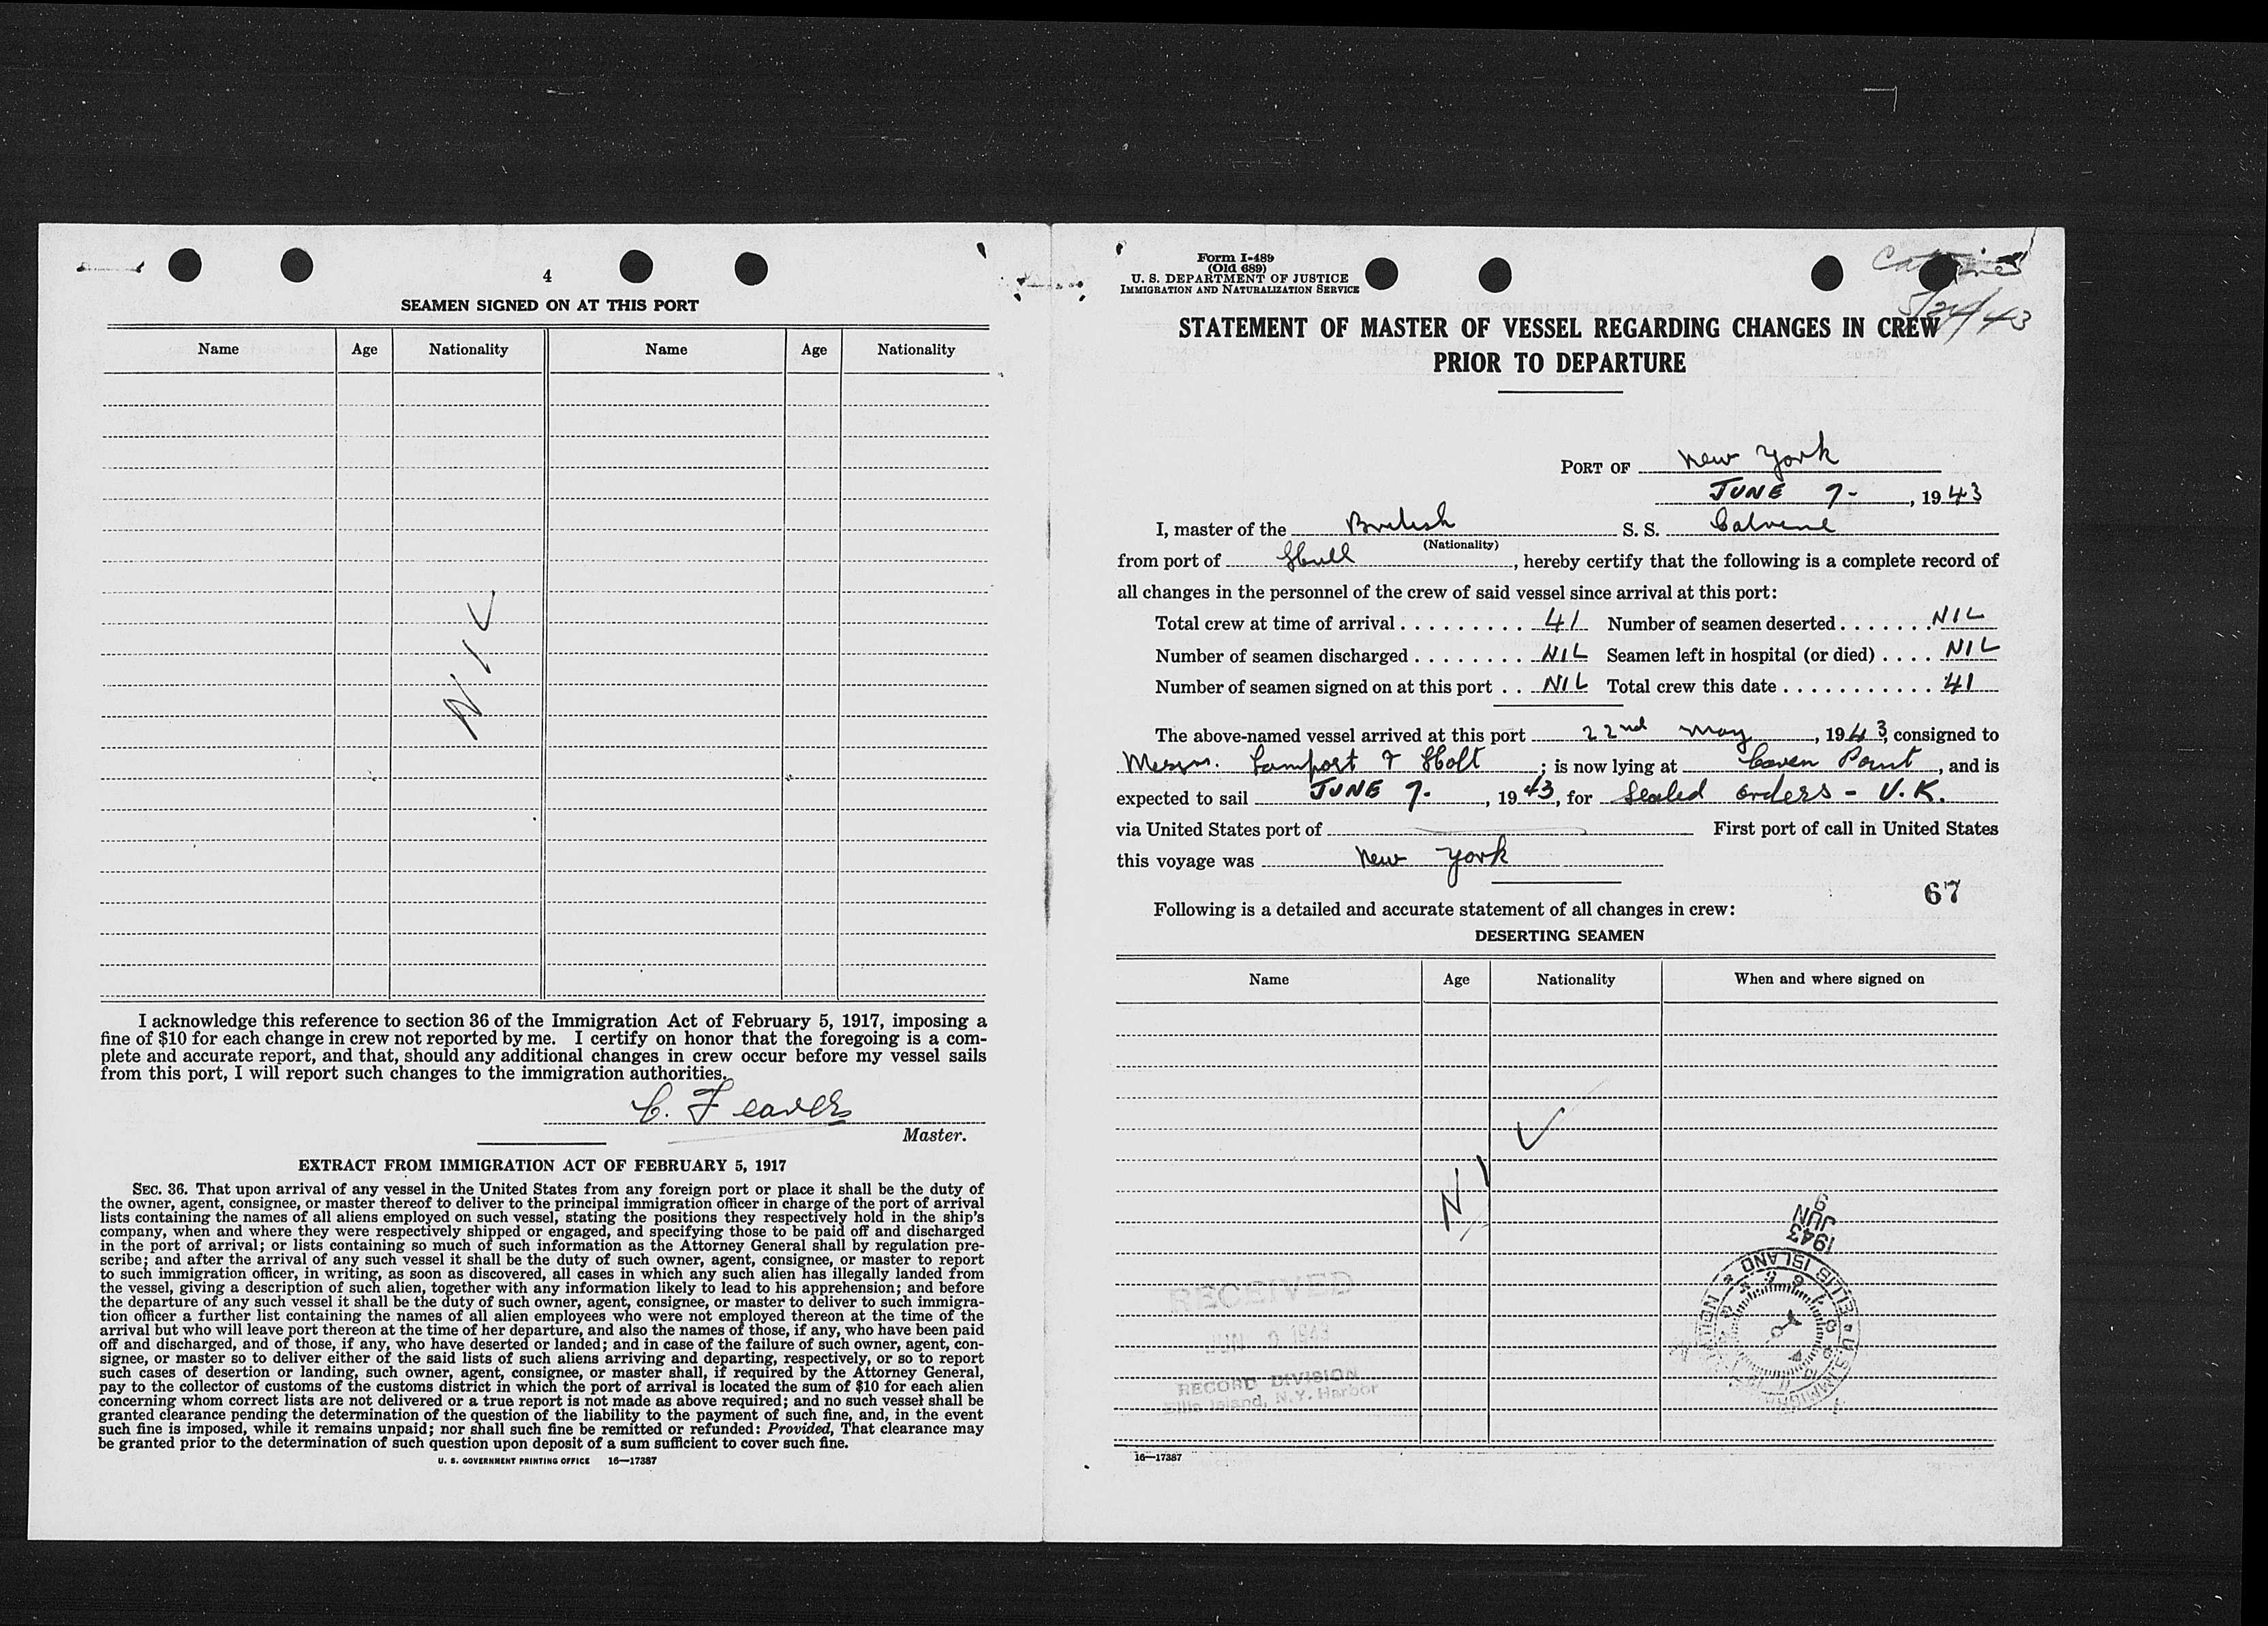 4
SEAMEN SIGNED ON AT THIS PORT
Name Age Nationality Name Age Nationality
NIL
I acknowledge this reference to section 36 of the Immigration Act of February 5, 1917, imposing a
fine of $10 for each change in crew not reported by me. I certify on honor that the foregoing is a com-
plete and accurate report, and that, should any additional changes in crew occur before my vessel sails
from this port, I will report such changes to the immigration authorities.
C. Feavers
Master.
EXTRACT FROM IMMIGRATION ACT OF FEBRUARY 5, 1917
SEC. 36. That upon arrival of any vessel in the United States from any foreign port or place it shall be the duty of
the owner, agent, consignee, or master thereof to deliver to the principal immigration officer in charge of the port of arrival
lists containing the names of all aliens employed on such vessel, stating the positions they respectively hold in the ship's
company, when and where they were respectively shipped or engaged, and specifying those to be paid off and discharged
in the port of arrival; or lists containing so much of such information as the Attorney General shall by regulation pre-
scribe; and after the arrival of any such vessel it shall be the duty of such owner, agent, consignee, or master to report
to such immigration officer, in writing, as soon as discovered, all cases in which any such alien has illegally landed from
the vessel, giving a description of such alien, together with any information likely to lead to his apprehension; and before
the departure of any such vessel it shall be the duty of such owner, agent, consignee, or master to deliver to such immigra-
tion officer a further list containing the names of all alien employees who were not employed thereon at the time of the
arrival but who will leave port thereon at the time of her departure, and also the names of those, if any, who have been paid
off and discharged, and of those, if any, who have deserted or landed; and in case of the failure of such owner, agent, con-
signee, or master so to deliver either of the said lists of such aliens arriving and departing, respectively, or so to report
such cases of desertion or landing, such owner, agent, consignee, or master shall, if required by the Attorney General,
pay to the collector of customs of the customs district in which the port of arrival is located the sum of $10 for each alien
concerning whom correct lists are not delivered or a true report is not made as above required; and no such vessel shall be
granted clearance pending the determination of the question of the liability to the payment of such fine, and, in the event
such fine is imposed, while it remains unpaid; nor shall such fine be remitted or refunded: Provided, That clearance may
be granted prior to the determination of such question upon deposit of a sum sufficient to cover such fine.
U. S. GOVERNMENT PRINTING OFFICE 16—17387
Form I-489
(Old 689)
U. S. DEPARTMENT OF JUSTICE
IMMIGRATION AND NATURALIZATION SERVICE
STATEMENT OF MASTER OF VESSEL REGARDING CHANGES IN CREW
PRIOR TO DEPARTURE
PORT OF New York
JUNE 7-, 1943
I, master of the British S. S. Calvene
(Nationality)
from port of Hull, hereby certify that the following is a complete record of
all changes in the personnel of the crew of said vessel since arrival at this port:
Total crew at time of arrival . . . . . . . . . . 41 Number of seamen deserted . . . . . . . NIL
Number of seamen discharged . . . . . . . . NIL Seamen left in hospital (or died) . . . . NIL
Number of seamen signed on at this port . . NIL Total crew this date . . . . . . . . . . . 41
The above-named vessel arrived at this port 22nd May, 1943, consigned to
Messrs. Lamport & Holt; is now lying at Caven Point, and is
expected to sail JUNE 7., 1943, for Sealed orders - U.K.
via United States port of First port of call in United States
this voyage was New York
67
Following is a detailed and accurate statement of all changes in crew:
DESERTING SEAMEN
Name Age Nationality When and where signed on
NI
1943
JUN
9
ELLIS ISLAND
RECEIVED
JUN 9 1943
RECORD DIVISION
Ellis Island, N.Y. Harbor
16—17387